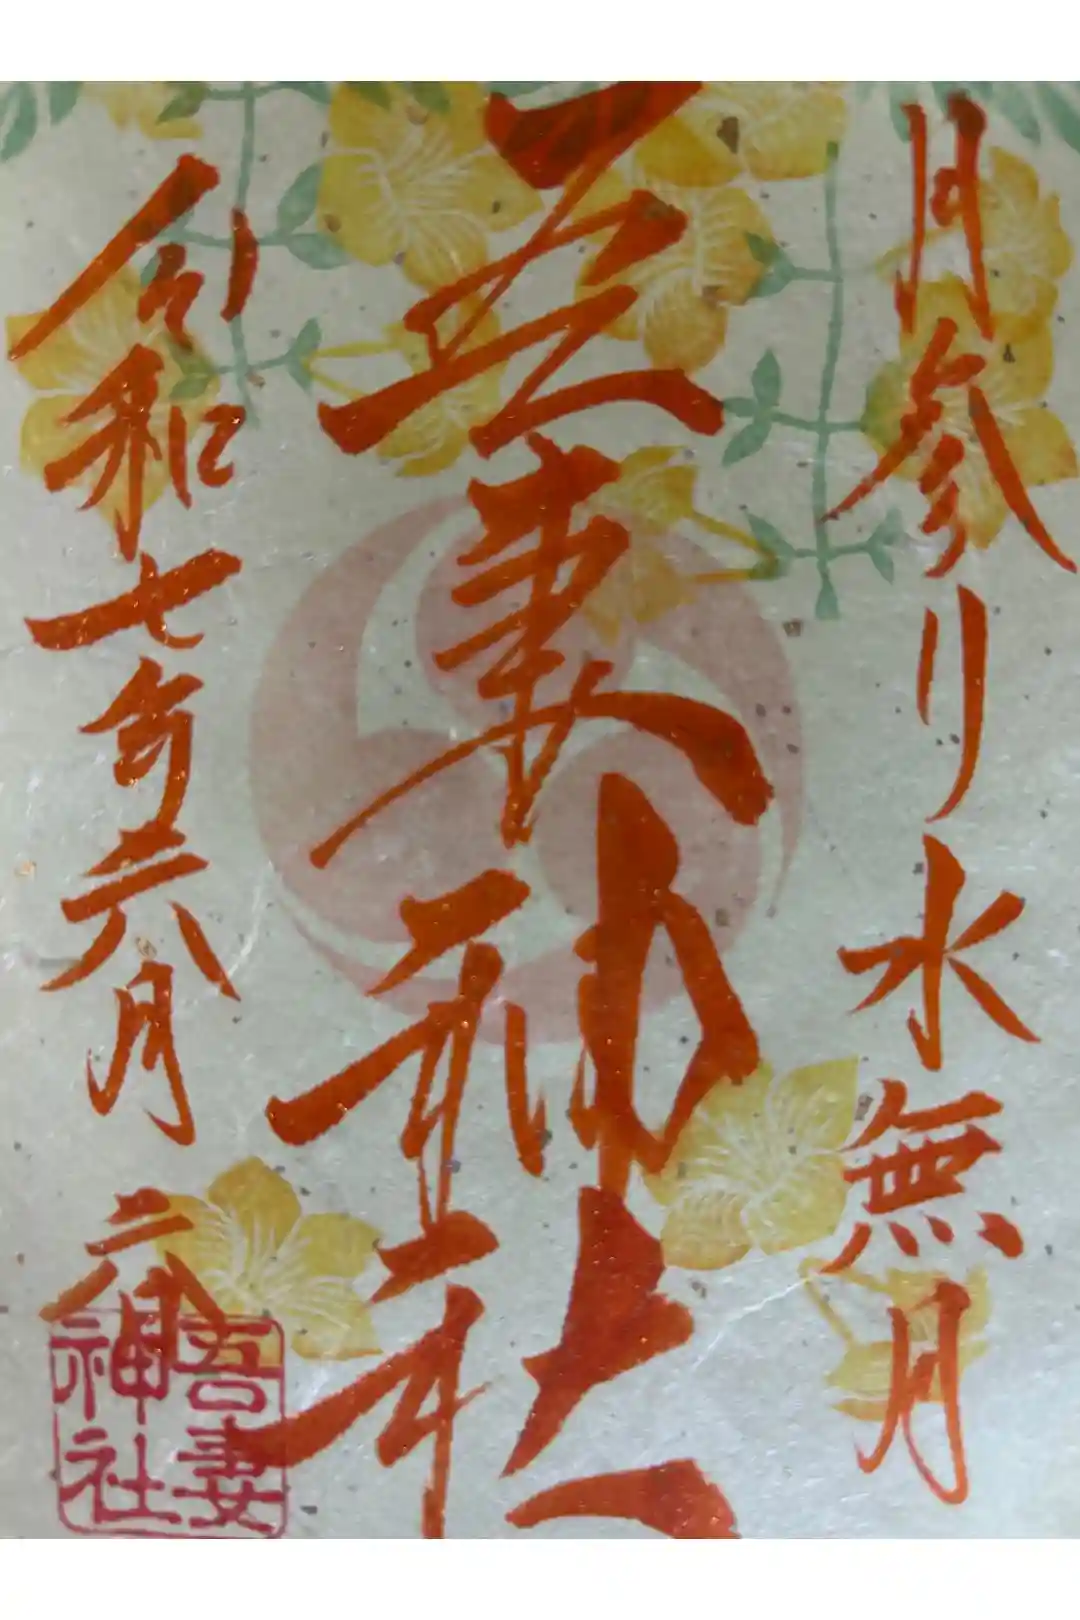 月参り水無月
吾妻神社
令和七年六月
吾妻
神社